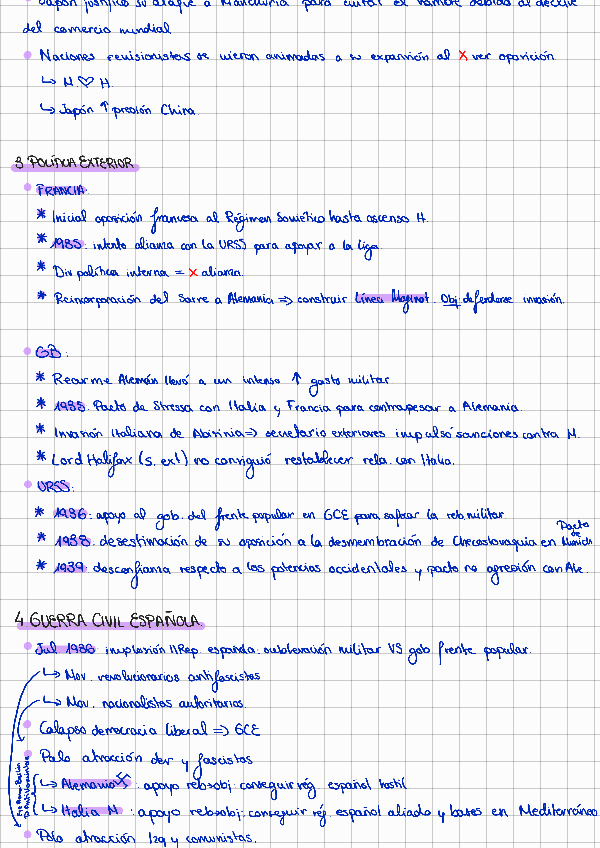 Japón justificó su ataque a Manchuria para evitar el hambre debido al declive
del comercio mundial
Naciones revisionistas se vieron animadas a su expansión al X ver oposición.
↳ M. ♡ H.
↳ Japón ↑ presión China.
3 POLÍTICA EXTERIOR
FRANCIA.
* Inicial oposición francesa al Régimen Soviético hasta ascenso H.
* 1935: intento alianza con la URSS para apoyar a la liga.
* Div política interna = X alianza.
* Reincorporación del Sarre a Alemania => construir Línea Maginot. Obj: defenderse invasión.
GB:
* Rearme Alemán llevó a un intenso ↑ gasto militar
* 1935: Pacto de Stressa con Italia y Francia para contrapesar a Alemania.
* Invasión Italiana de Abisinia => secretario exteriores impulsó sanciones contra M.
* Lord Halifax (s. ext) no consiguió restablecer rela. con Italia.
URSS:
* 1936: apoyo al gob. del frente popular en GCE para sofocar la reb. militar
* 1938: desestimación de su oposición a la desmembración de Checoslovaquia en Pacto de Munich
* 1939 desconfianza respecto a las potencias occidentales y pacto no agresión con Ale.
4 GUERRA CIVIL ESPAÑOLA.
Jul 1936 implosión II Rep. española. sublevación militar VS gob frente popular.
↳ Mov. revolucionarios antifascistas
↳ Mov. nacionalistas autoritarios.
Colapso democracia liberal => GCE
Polo atracción der y fascistas
↳ Alemania 卐: apoyo reb → obj: conseguir rég español hostil
↳ Italia M : apoyo reb → obj: conseguir rég. español aliado y bases en Mediterráneo
Polo atracción Izq y comunistas.